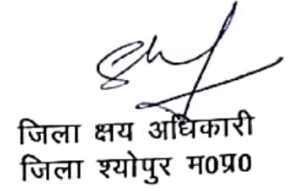 जिला क्षय अधिकारी
जिला श्योपुर म0प्र0